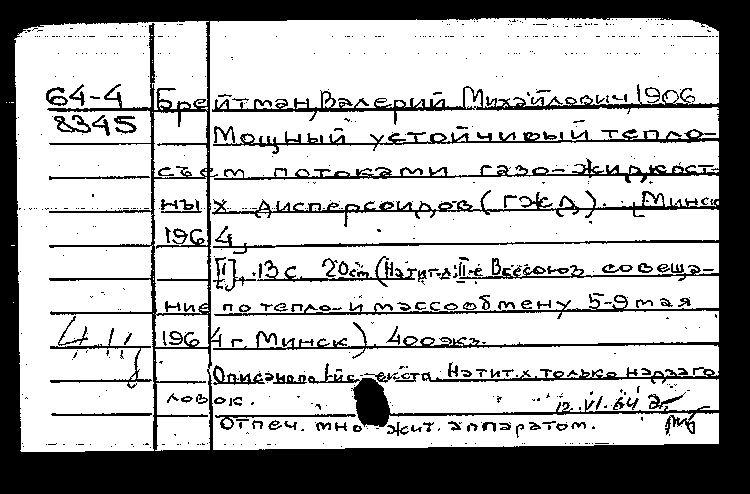 64-4 Брейтман, Валерий Михайлович, 1906
8345 Мощный устойчивый тепло-
съем потоками газо-жидкост-
ных дисперсоидов (ГЖД). [Минск
1964]
[1], 13 с. 20 см (На тит. л.: II-е Всесоюз. совеща-
ние по тепло- и массообмену 5-9 мая
1964 г. Минск). 400 экз.
Описано по 1-й с. текста. На тит. л. только надзаго
ловок.
12.VI.64
Отпеч. множит. аппаратом.